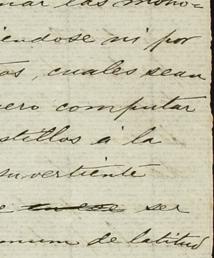 las mono=
iendose ni por
os, cuales sean
ero computar
stillos á la
su vertiente
ser
de latitud